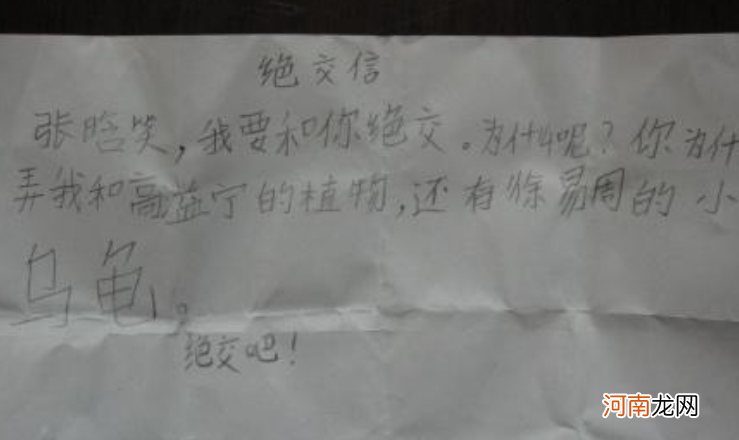 绝交信
张晗笑,我要和你绝交。为什么呢?你为什
弄我和高益宁的植物,还有徐易周的小
乌龟。
绝交吧!
河南龙网